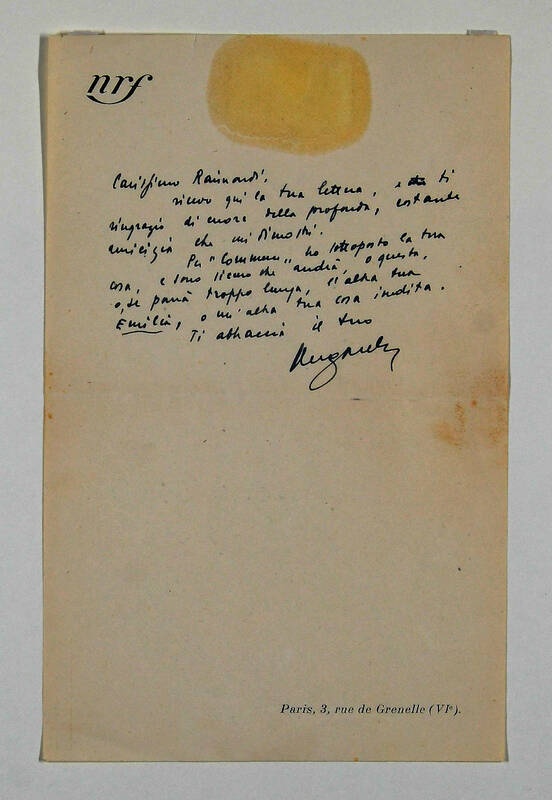 nrf
Carissimo Raimondi,
ricevo qui la tua lettera, e ti
ringrazio di cuore della profonda, costante
amicizia che mi dimostri.
Per "Commerce" ho sottoposto la tua
cosa, e sono sicuro che andrà, o questa,
o, se parrà troppo lunga, l'altra tua
Emilia, o un'altra tua cosa inedita.
Ti abbraccia il tuo
Ungaretti
Paris, 3, rue de Grenelle (VIe).